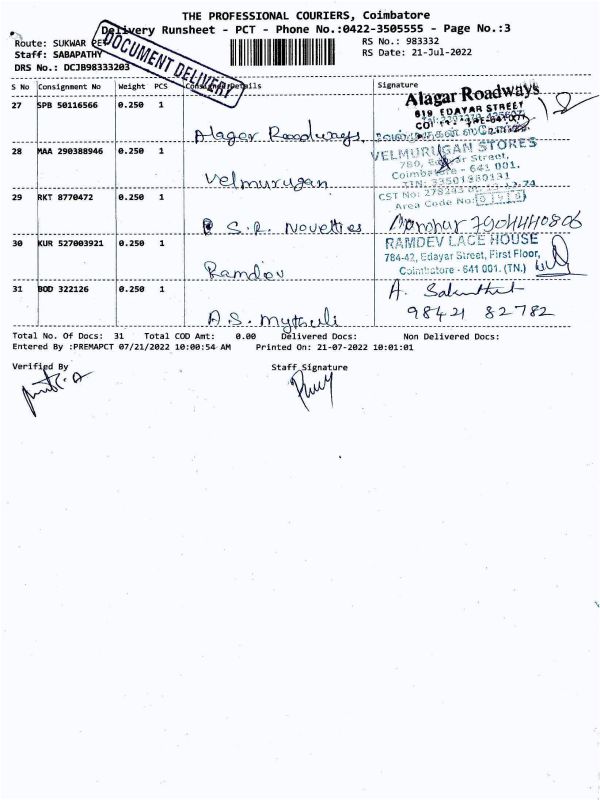 THE PROFESSIONAL COURIERS, Coimbatore
Delivery Runsheet - PCT - Phone No.:0422-3505555 - Page No.:3
Route: SUKWAR PE
RS No.: 983332
Staff: SABAPATHY
RS Date: 21-Jul-2022
DRS No.: DCJB98333203
DOCUMENT DELIVERY
S No Consignment No Weight PCS Consignee Details Signature
27 SPB 50116566 0.250 1 Alagar Roadways.
Alagar Roadways
819 EDAYAR STREET
28 MAA 290388946 0.250 1 Velmurugan
VELMURUGAN STORES
780, Edayar Street,
Coimbatore - 641 001.
TIN: 33501980131
CST No: 278243
Area Code No:
29 RKT 8770472 0.250 1 S.R. Novelties
7904440806
30 KUR 527003921 0.250 1 Ramdev
RAMDEV LACE HOUSE
784-42, Edayar Street, First Floor,
Coimbatore - 641 001. (TN.)
31 BOD 322126 0.250 1 A.S. Mythili
98421 82782
Total No. Of Docs: 31 Total COD Amt: 0.00 Delivered Docs: Non Delivered Docs:
Entered By :PREMAPCT 07/21/2022 10:00:54 AM Printed On: 21-07-2022 10:01:01
Verified By Staff Signature